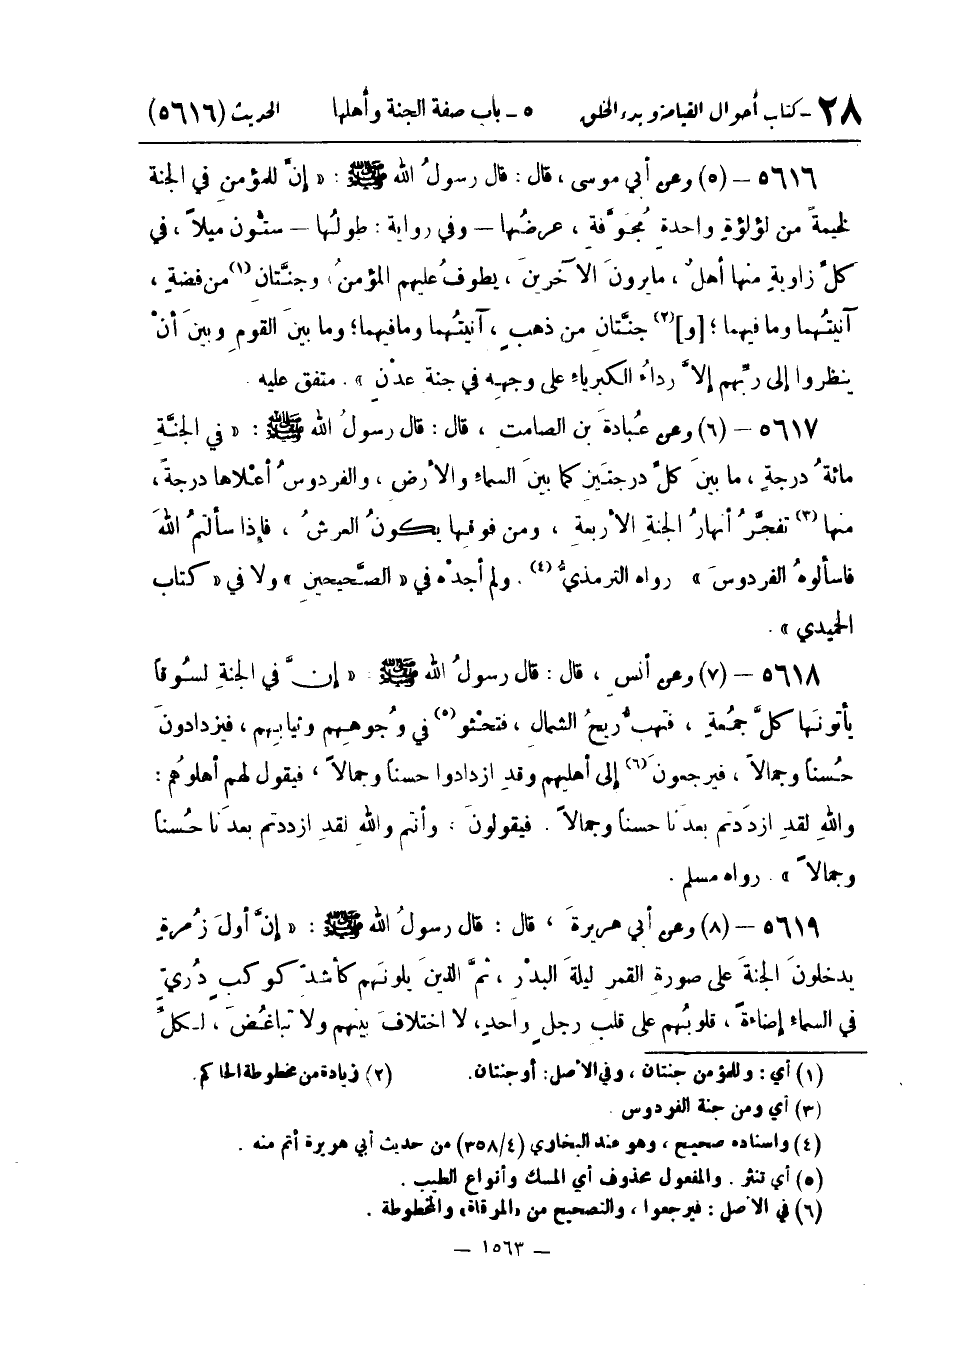 ٢٨ - كتاب أحوال القيامة وبدء الخلق ٥ - باب صفة الجنة وأهلها الحديث (٥٦١٦)
٥٦١٦ – (٥) وعن أبي موسى ، قال : قال رسولُ الله ﷺ : « إنَّ للمؤمنِ في الجنة
لخيمةً من لؤلؤةٍ واحدةٍ مُجَوَّفةٍ ، عرضُها – وفي رواية : طولُها – ستُّون ميلاً ، في
كلِّ زاويةٍ منها أهلٌ ، ما يرونَ الآخرينَ ، يطوفُ عليهم المؤمنُ، وجنَّتانِ(١) من فضةٍ ،
آنيتُهما وما فيهما ؛ [و](٢) جنَّتانِ من ذهبٍ ، آنيتُهما وما فيهما؛ وما بينَ القومِ وبينَ أنْ
ينظروا إلى ربِّهم إلاَّ رداءُ الكبرياءِ على وجهِه في جنةِ عدْنٍ » . متفق عليه .
٥٦١٧ – (٦) وعن عُبادةَ بن الصامتِ ، قال : قال رسولُ الله ﷺ : « في الجنَّةِ
مائةُ درجةٍ ، ما بينَ كلِّ درجتينِ كما بينَ السماءِ والأرضِ ، والفردوسُ أعْلاها درجةً ،
منها (٣) تفجَّرُ أنهارُ الجنةِ الأربعةِ ، ومن فوقِها يكونُ العرشُ ، فإذا سألتمُ اللهَ
فاسألوهُ الفردوسَ » رواه الترمذيُّ(٤) . ولم أجدْه في « الصَّحيحينِ » ولا في « كتاب
الحميدي » .
٥٦١٨ – (٧) وعن أنسٍ ، قال : قال رسولُ الله ﷺ : « إنَّ في الجنةِ لسُوقاً
يأتونَها كلَّ جمُعةٍ ، فتهبُّ ريحُ الشمالِ ، فتحْثو(٥) في وُجوهِهم وثيابِهم ، فيزدادونَ
حُسناً وجمالاً ، فيرجعونَ(٦) إلى أهليهم وقدِ ازدادوا حسناً وجمالاً ، فيقول لهم أهلوُهم :
واللهِ لقدِ ازدَدتم بعدَنا حسناً وجمالاً . فيقولونَ : وأنتم واللهِ لقدِ ازددتم بعدَنا حُسناً
وجمالاً » . رواه مسلم .
٥٦١٩ – (٨) وعن أبي هريرةَ ، قال : قال رسولُ الله ﷺ : « إنَّ أولَ زُمرةٍ
يدخلونَ الجنةَ على صورةِ القمرِ ليلةَ البدْرِ ، ثمَّ الذينَ يلونَهم كأشدِّ كوكبٍ دُريٍّ
في السماءِ إضاءةً ، قلوبُهم على قلبِ رجلٍ واحدٍ، لا اختلافَ بينهم ولا تباغُضَ ، لكلِّ
(١) أي : وللمؤمن جنتان ، وفي الأصل: أو جنتان. (٢) زيادة من مخطوطة الحاكم.
(٣) أي ومن جنة الفردوس .
(٤) واسناده صحيح ، وهو عند البخاري (٣٥٨/٤) من حديث أبي هريرة أتم منه .
(٥) أي تنثر . والمفعول محذوف أي المسك وأنواع الطيب .
(٦) في الأصل : فيرجعوا ، والتصحيح من «المرقاة» والمخطوطة .
– ١٥٦٣ –